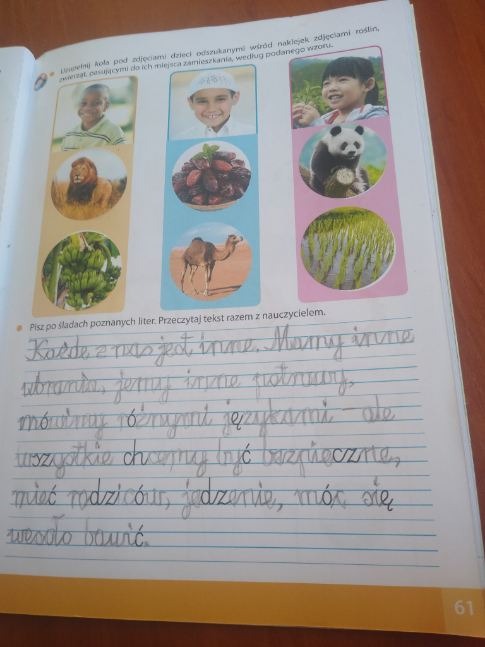 Uzupełnij koła pod zdjęciami dzieci odszukanymi wśród naklejek zdjęciami roślin,
zwierząt, pasującymi do ich miejsca zamieszkania, według podanego wzoru.
Pisz po śladach poznanych liter. Przeczytaj tekst razem z nauczycielem.
Każde z nas jest inne. Mamy inne
ubrania, jemy inne potrawy,
mówimy różnymi językami – ale
wszystkie chcemy być bezpieczne,
mieć rodziców, jedzenie, móc się
wesoło bawić.
61